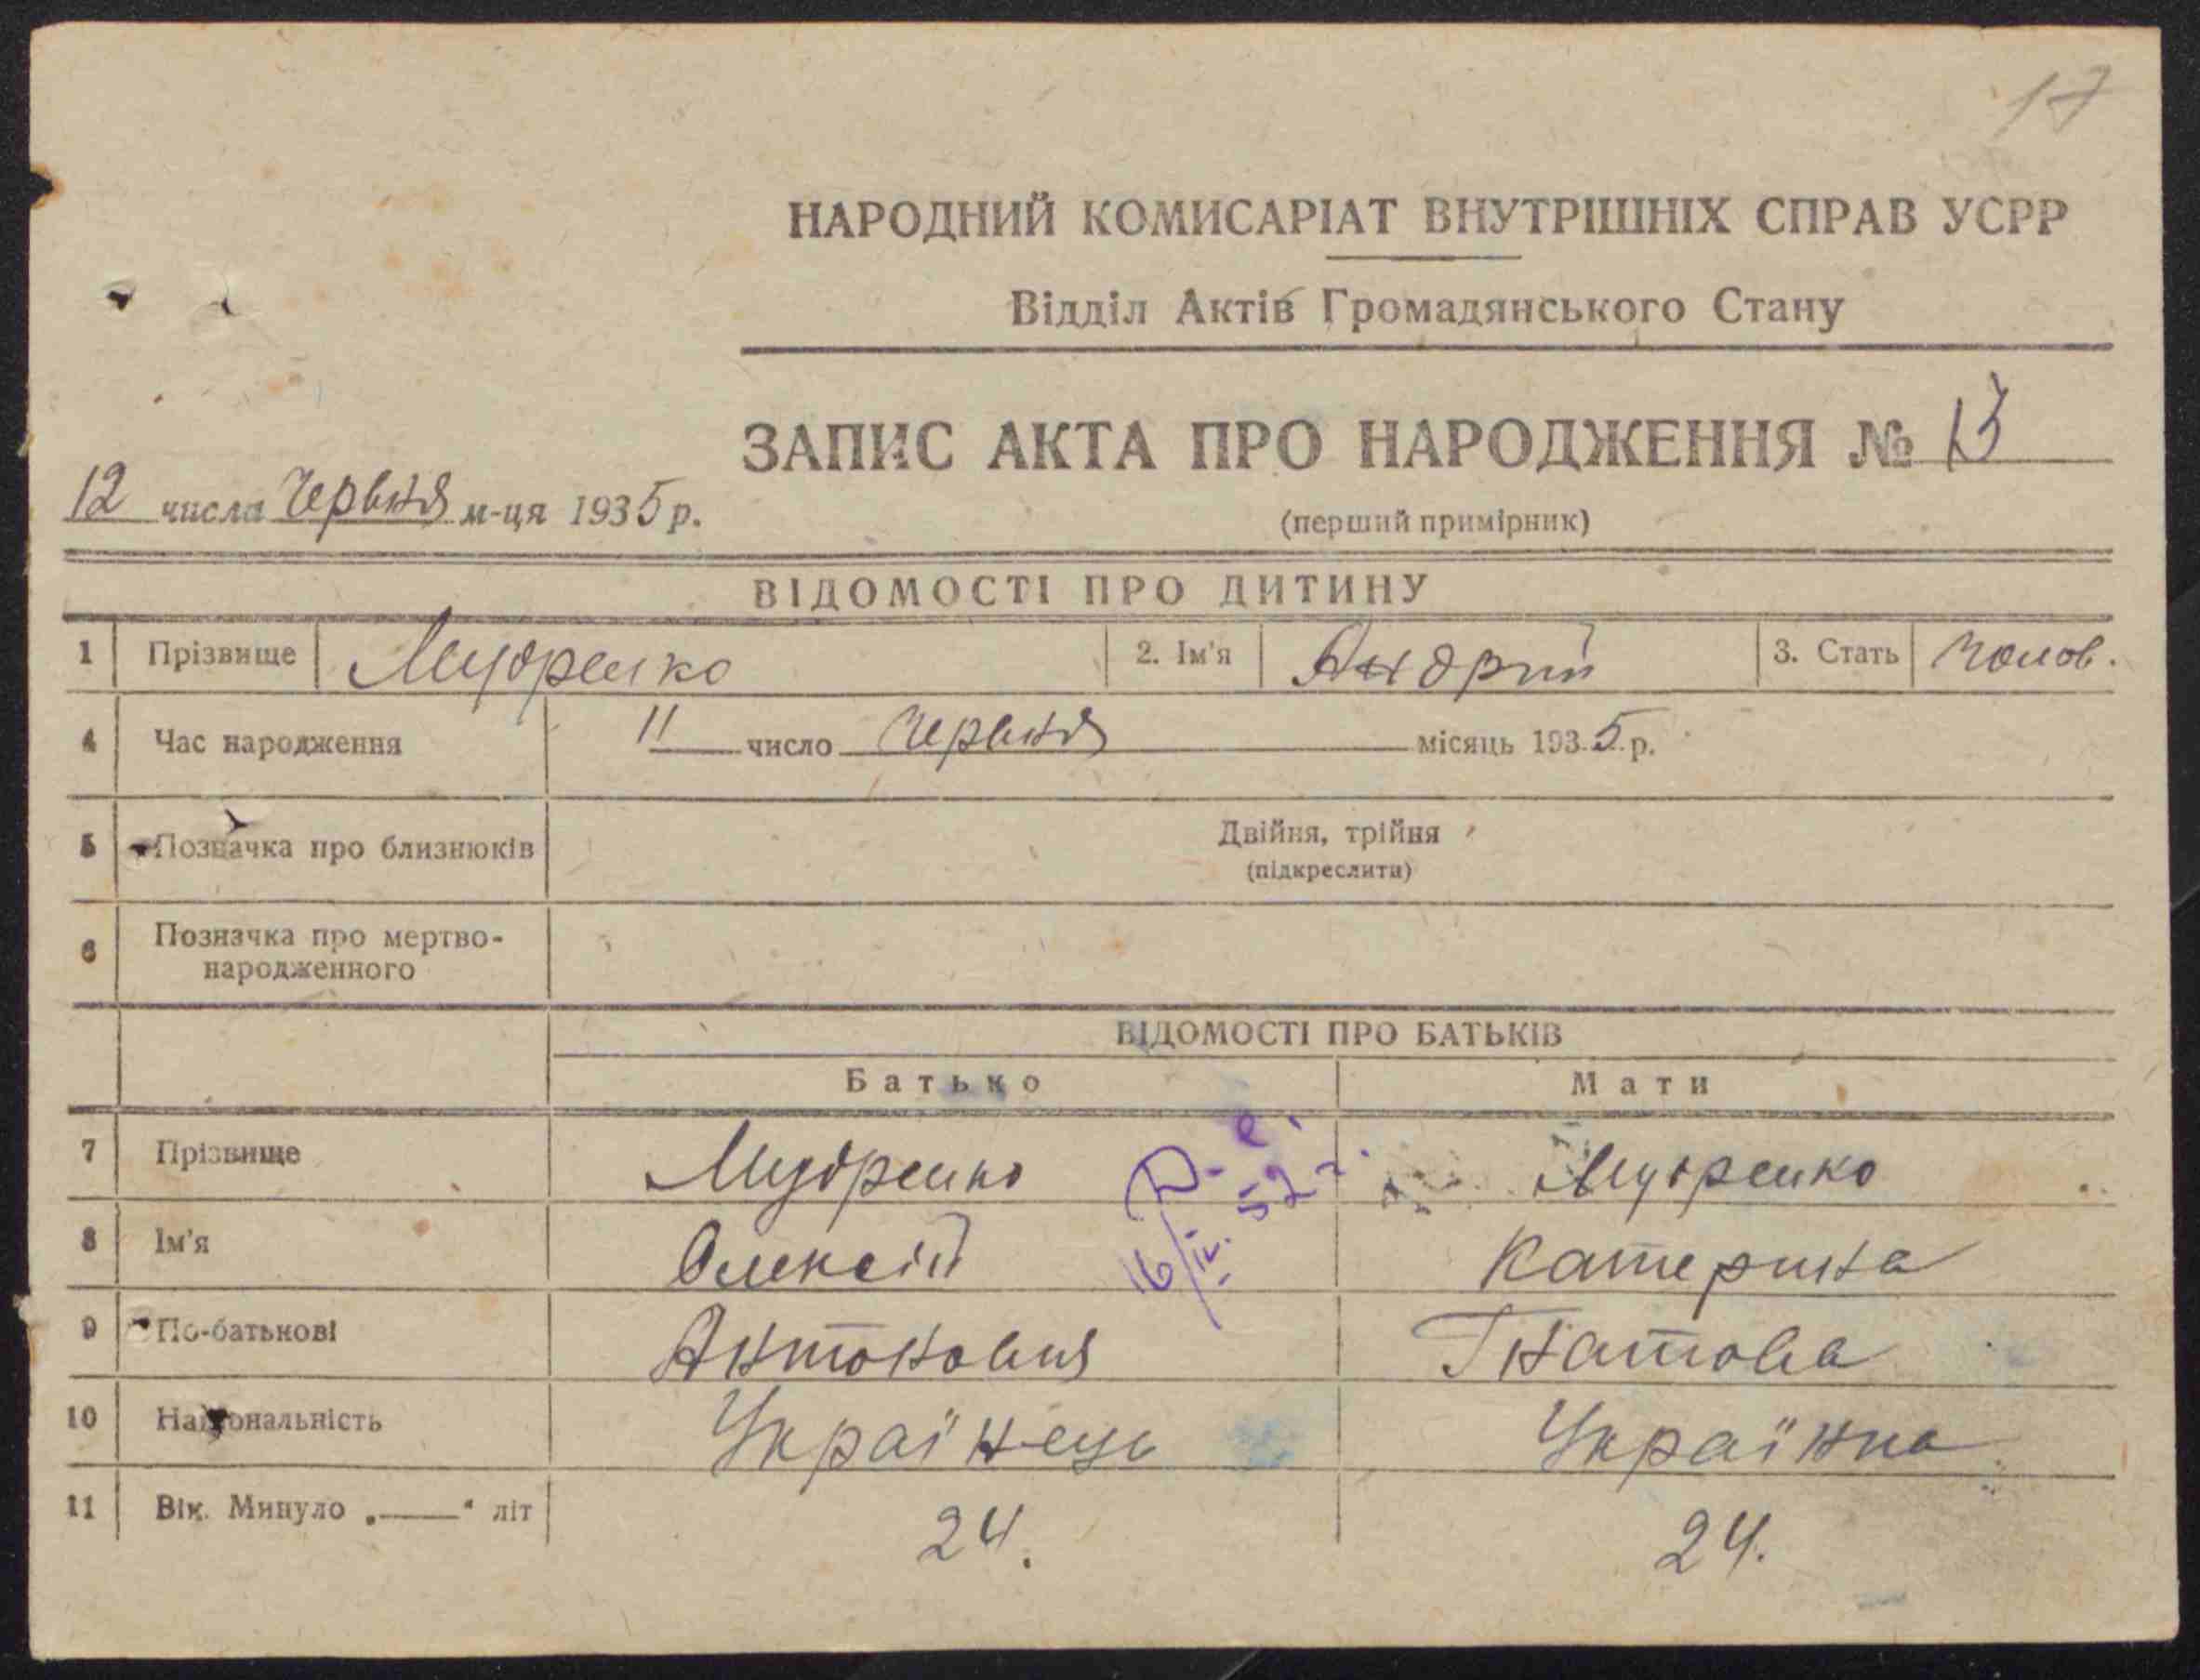 17
НАРОДНИЙ КОМИСАРІАТ ВНУТРІШНІХ СПРАВ УСРР
Відділ Актів Громадянського Стану
ЗАПИС АКТА ПРО НАРОДЖЕННЯ № 13
12 числа Червня м-ця 1935 р.
(перший примірник)
ВІДОМОСТІ ПРО ДИТИНУ
1 Прізвище Мудренко 2. Ім'я Андрий 3. Стать Чолов.
4 Час народження 11 число Червня місяць 1935 р.
5 Позначка про близнюків Двійня, трійня
(підкреслити)
6 Позначка про мертво-
народженного
ВІДОМОСТІ ПРО БАТЬКІВ
Батько Мати
7 Прізвище Мудренко Мудренко
8 Ім'я Олексій Катерина
9 По-батькові Антоновия Гнатова
10 Національність Українець Українка
11 Вік. Минуло „—“ літ 24. 24.
16/IV. 52 г.